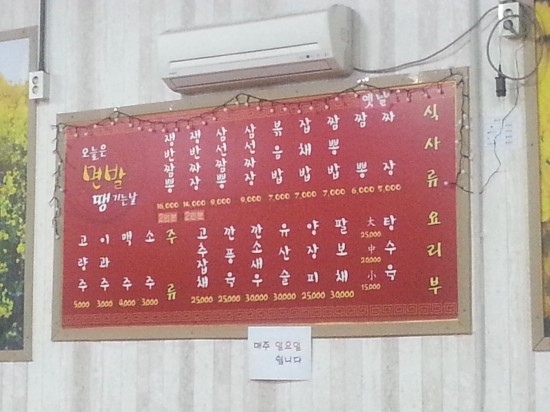 식사류
옛날 짜장 5,000
짬뽕 6,000
잡채밥 7,000
짬뽕밥 7,000
볶음밥 7,000
삼선짜장 8,000
삼선짬뽕 9,000
쟁반짜장 14,000 2인분
쟁반짬뽕 16,000 2인분
오늘은
면발
땡기는날
요리부
탕수육
大 25,000
中 20,000
小 15,000
팔보채 30,000
양장피 25,000
유산슬 30,000
깐소새우 30,000
깐풍육 25,000
고추잡채 25,000
주류
소주 3,000
맥주 4,000
이과주 3,000
고량주 5,000
매주 일요일
쉽니다